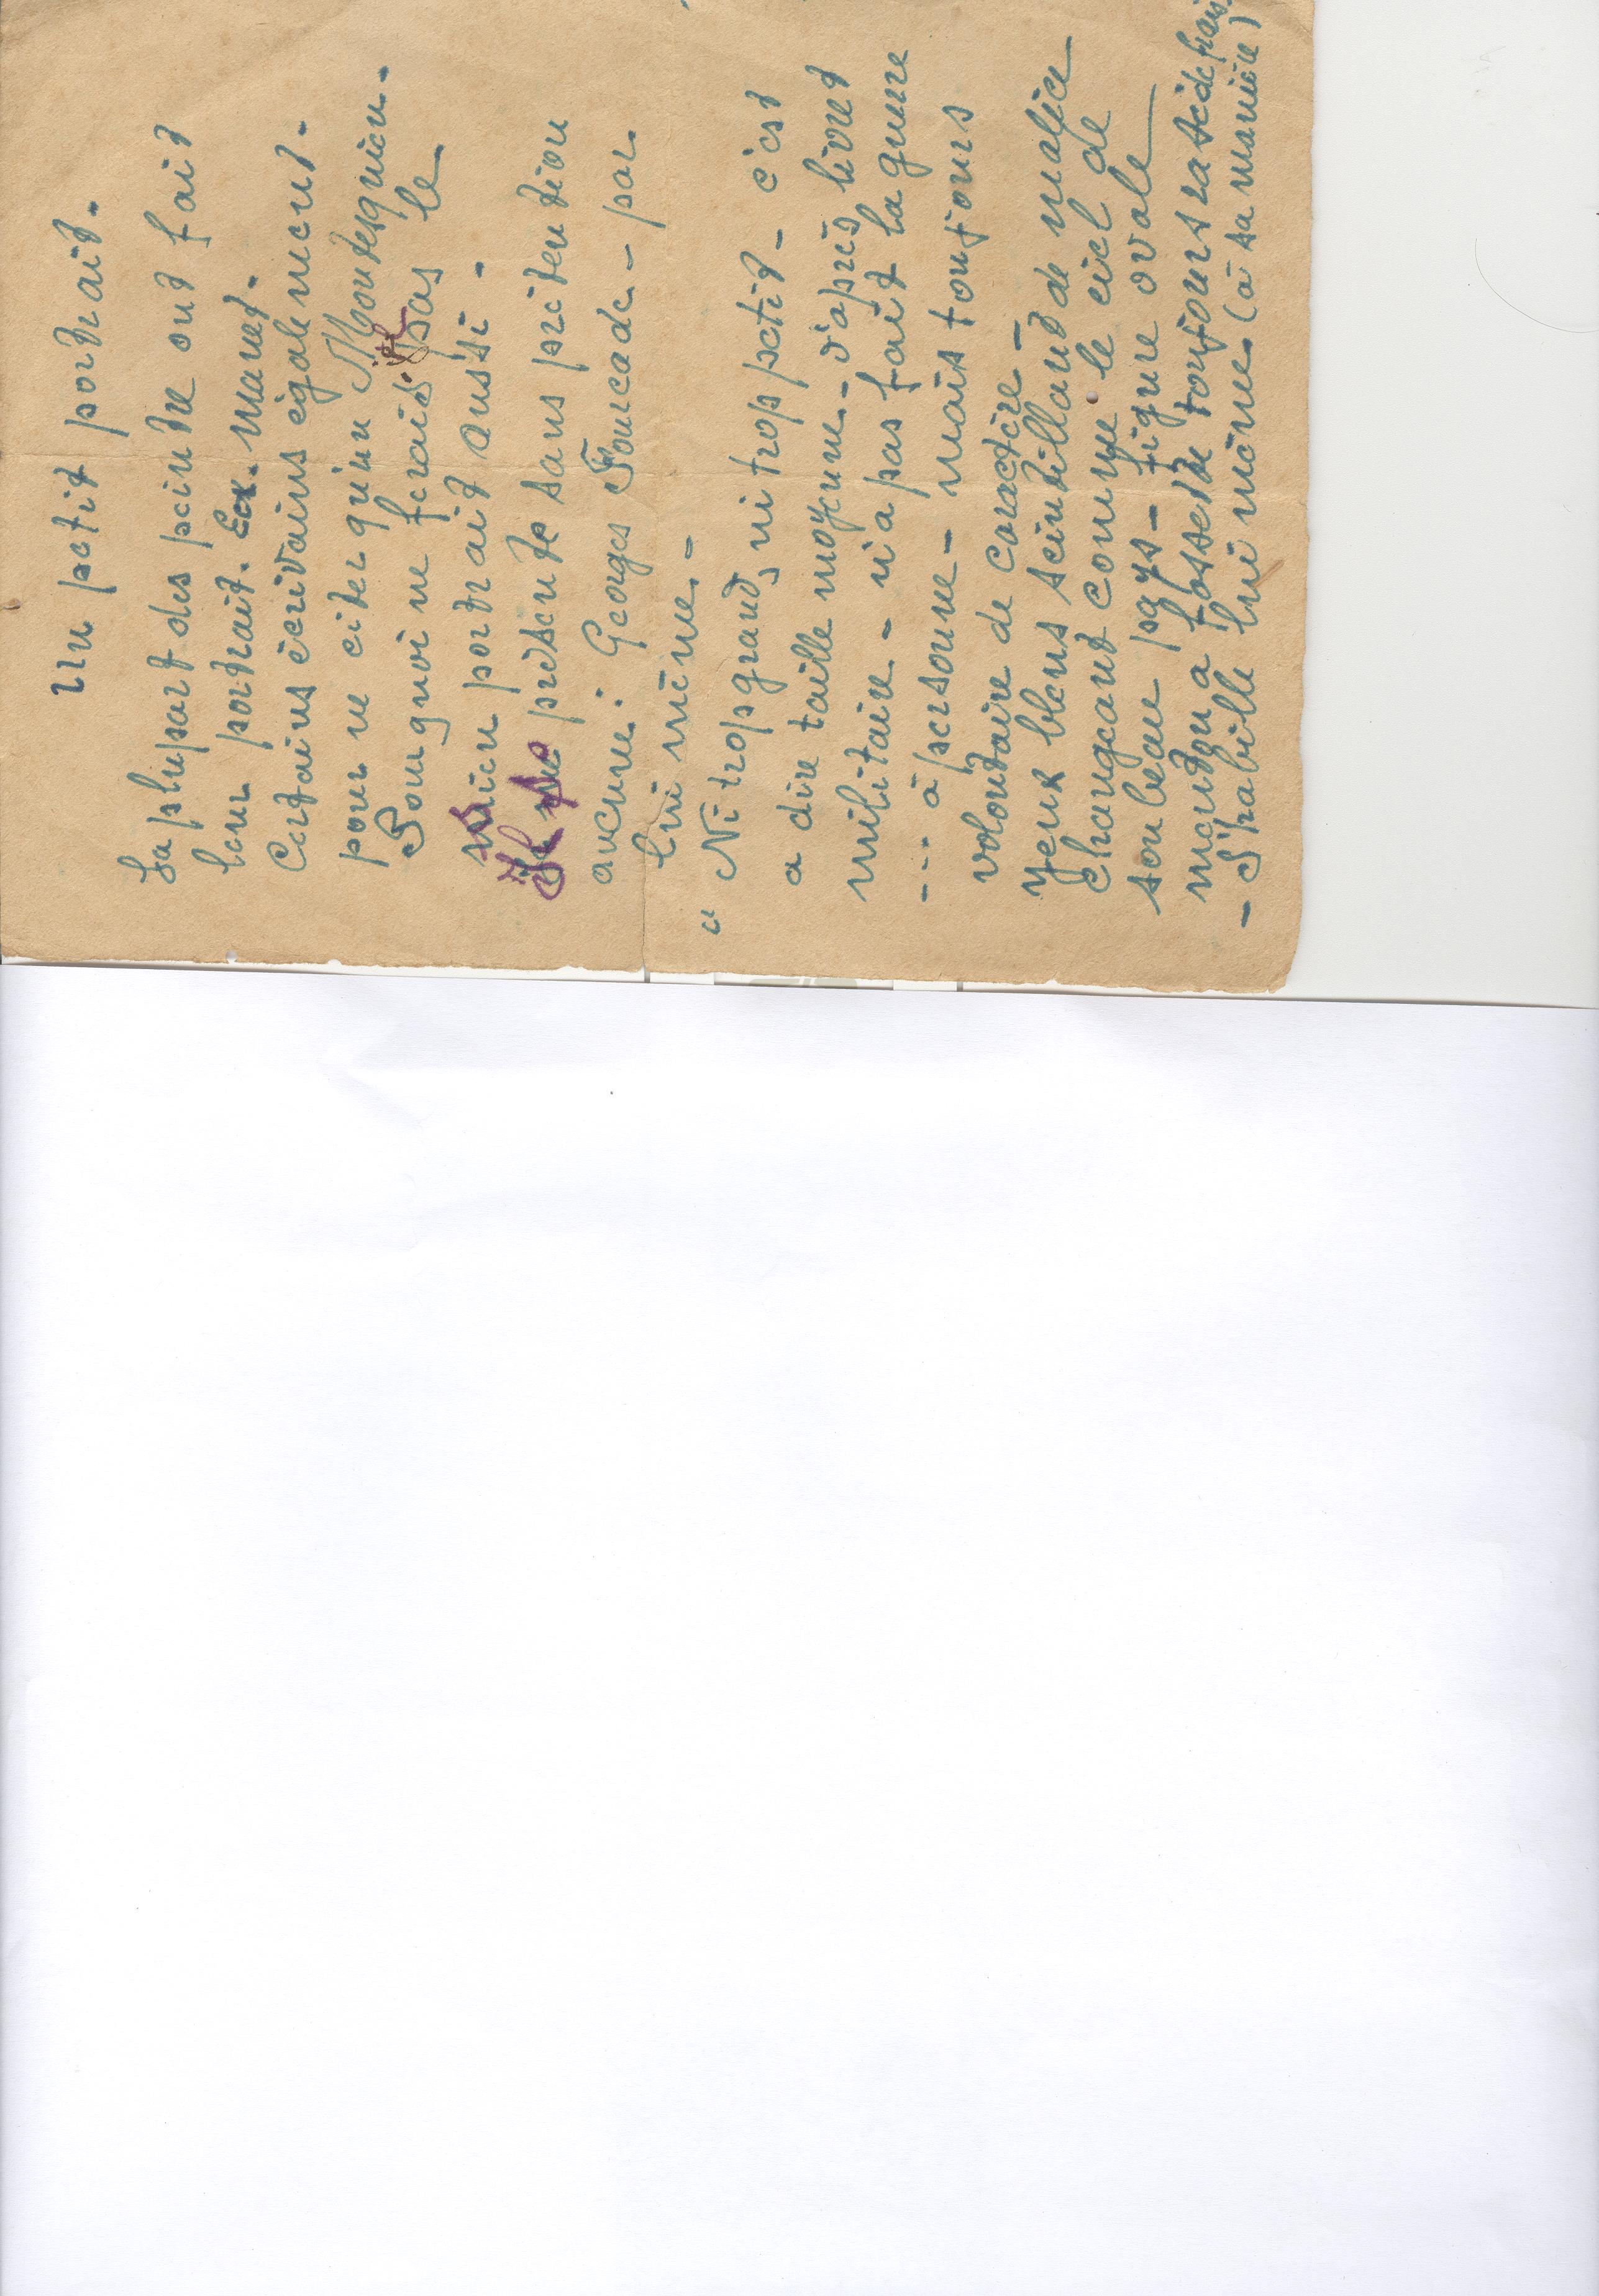 Un petit portrait.
La plupart des peintre ont fait
leur portrait. Ex. Manet.
Certains écrivains également.
pour ne citer qu'un Montesquieu.
Pourquoi ne ferais-je pas le
mien portrait aussi.
présente sans prétention
aucune: Georges Fourcade - par
lui même -
" Ni trop grand, ni trop petit - c'est
a dire taille moyenne - d'après livret
militaire - n'a pas fait la guerre
... à personne - mais toujours
volontaire de caractère -
yeux bleus scintillant de malice
changeant comme le ciel de
son beau pays - figure ovale
menton a fossette toujours ratédefrais
- S'habille lui même (à sa manière)